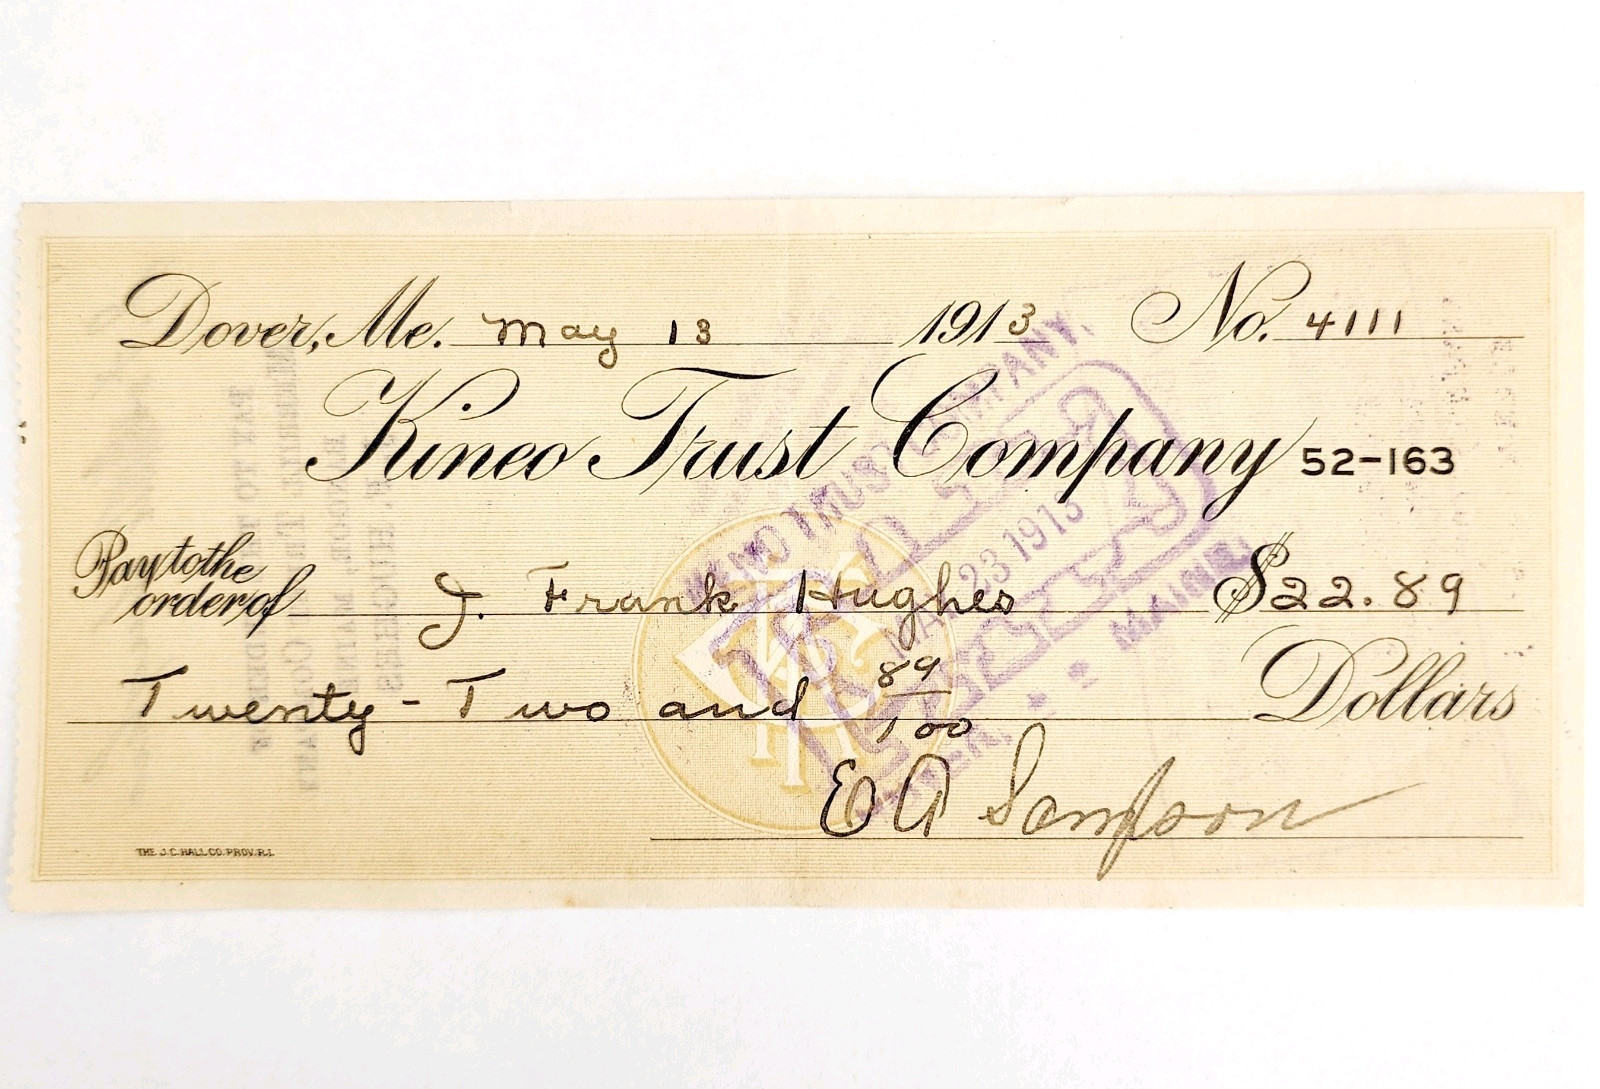 Dover, Me. May 13 1913 No. 4111
Kineo Trust Company 52-163
Pay to the
order of J. Frank Hughes $22.89
Twenty-Two and 89/100 Dollars
E A Sampson
THE J.C. HALL CO. PROV. R.I.
KINEO TRUST COMPANY,
PAID
MAY 23 1913
DOVER, MAINE.
KTC